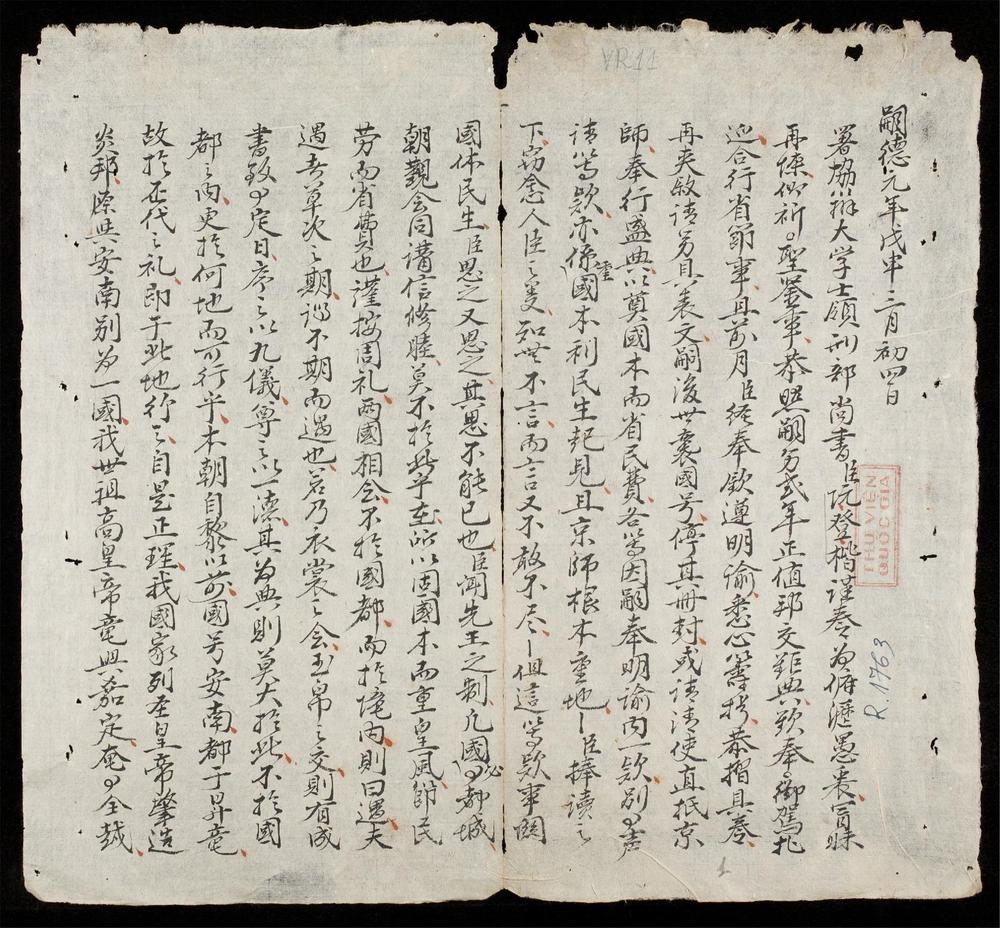 嗣德元年戊申三月初四日
署協辦大学士領刑部尚書臣阮登楷謹奏為俯瀝愚衷冒昧
再陳仰祈聖鑒事恭照嗣另貳年正值邦交鉅典欵奉御駕扎
迎合行省節事且前月臣經奉欽遵明諭悉心籌 恭摺具奏
再夾敘請另具表文嗣後世襲國号停其冊封或請清使直抵京
師奉行盛典以奠國本而省民費各等因嗣奉明諭内一欵别 声
請等欵亦係重國本利民生起見且京師根本重地臣捧读之
下窃念人臣之受知無不言而言又不敢不尽但這等欵事関
國体民生臣思之又思之其思不能已也臣聞先王之制凡國必 都城
朝覲会同溝信修睦莫不於此乎在所以固國本而重皇風節民
劳而省費也谨按周礼两國相会不於國都而於境内則曰遇夫
遇者草次之期 不期而遇也若乃衣裳之会玉帛之交則有成
書敘 定日序之以九儀尊之以一 其為典則莫大於此不於國
都之内更於何地而可行乎本朝自黎以前國号安南都于昇竜
故於 代之礼即于此地行之自是正理我國家列圣皇帝肇造
炎邦原與安南别為一國我世祖高皇帝竜興嘉定奄 全越
VR11
THƯ VIỆN
QUỐC GIA
R.1763
1